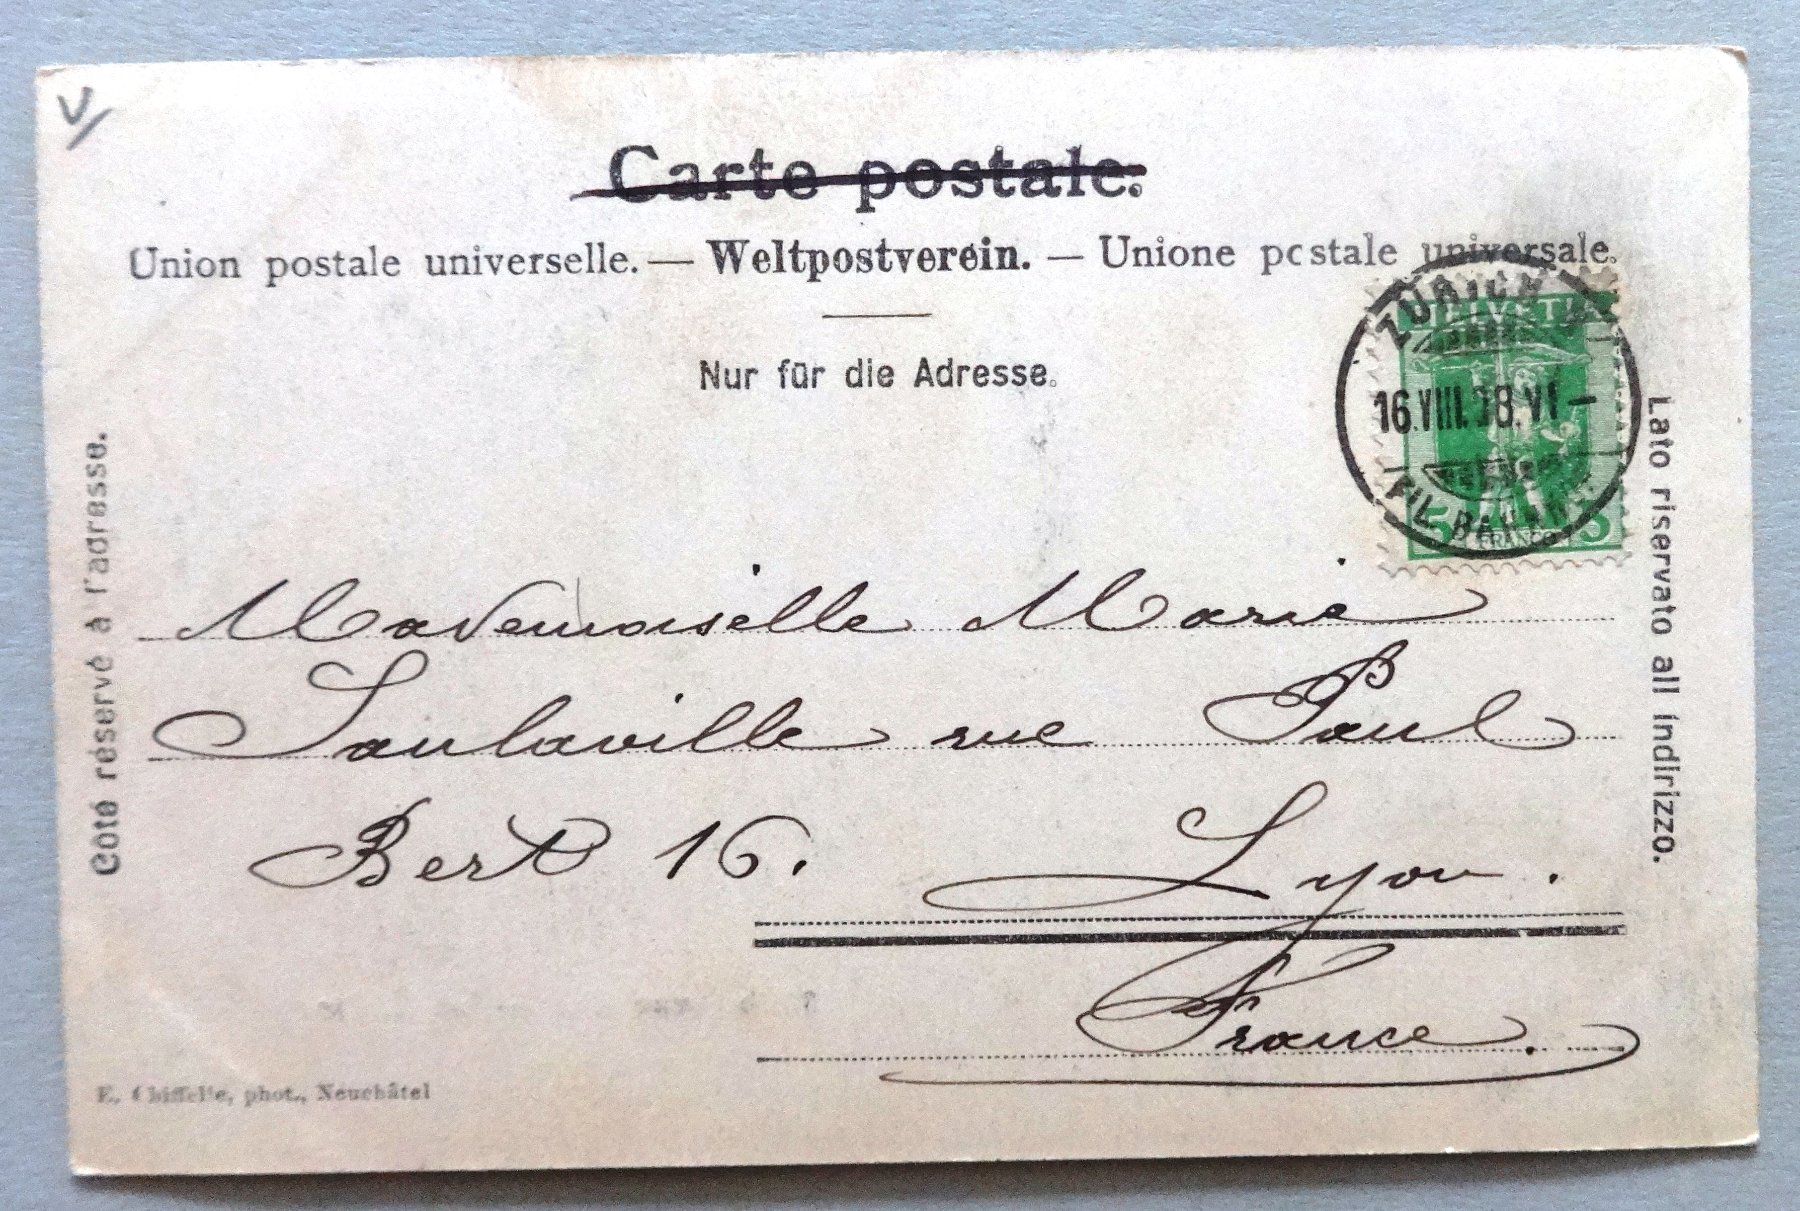 Carte postale.
Union postale universelle. — Weltpostverein. — Unione postale universale.
Nur für die Adresse.
Côté réservé à l'adresse.
Lato riservato all indirizzo.
ZÜRICH
16.VIII. 8.VI-
FIL. BAHNH.
HELVETIA
5 FRANCO 5
Mademoiselle Marie
Saulaville rue Paul
Bert 16. Lyon.
France.
E. Chiffelle, phot., Neuchâtel